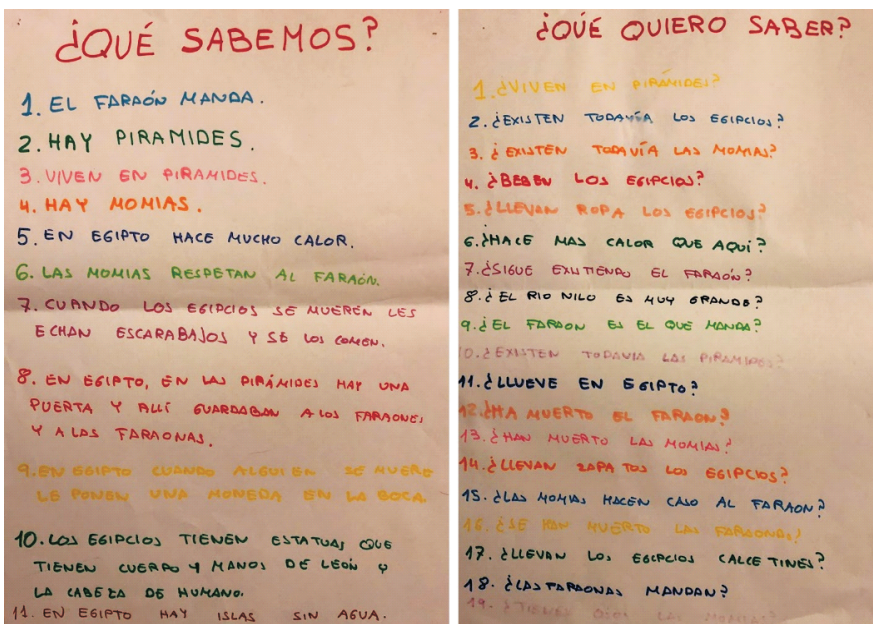 ¿QUÉ SABEMOS?
1. EL FARAÓN MANDA.
2. HAY PIRAMIDES.
3. VIVEN EN PIRAMIDES.
4. HAY MOMIAS.
5. EN EGIPTO HACE MUCHO CALOR.
6. LAS MOMIAS RESPETAN AL FARAÓN.
7. CUANDO LOS EGIPCIOS SE MUEREN LES
ECHAN ESCARABAJOS Y SE LOS COMEN.
8. EN EGIPTO, EN LAS PIRÁMIDES HAY UNA
PUERTA Y ALLÍ GUARDABAN A LOS FARAONES
Y A LAS FARAONAS.
9. EN EGIPTO CUANDO ALGUIEN SE MUERE
LE PONEN UNA MONEDA EN LA BOCA.
10. LOS EGIPCIOS TIENEN ESTATUAS QUE
TIENEN CUERPO Y MANOS DE LEÓN Y
LA CABEZA DE HUMANO.
11. EN EGIPTO HAY ISLAS SIN AGUA.
¿QUÉ QUIERO SABER?
1. ¿VIVEN EN PIRÁMIDES?
2. ¿EXISTEN TODAVÍA LOS EGIPCIOS?
3. ¿EXISTEN TODAVÍA LAS MOMIAS?
4. ¿BEBEN LOS EGIPCIOS?
5. ¿LLEVAN ROPA LOS EGIPCIOS?
6. ¿HACE MAS CALOR QUE AQUÍ?
7. ¿SIGUE EXISTIENDO EL FARAÓN?
8. ¿EL RIO NILO ES MUY GRANDE?
9. ¿EL FARAON ES EL QUE MANDA?
10. ¿EXISTEN TODAVIA LAS PIRAMIDES?
11. ¿LLUEVE EN EGIPTO?
12. ¿HA MUERTO EL FARAON?
13. ¿HAN MUERTO LAS MOMIAS?
14. ¿LLEVAN ZAPATOS LOS EGIPCIOS?
15. ¿LAS MOMIAS HACEN CASO AL FARAON?
16. ¿SE HAN MUERTO LAS FARAONAS?
17. ¿LLEVAN LOS EGIPCIOS CALCETINES?
18. ¿LAS FARAONAS MANDAN?
19. ¿TIENEN OJOS LAS MOMIAS?